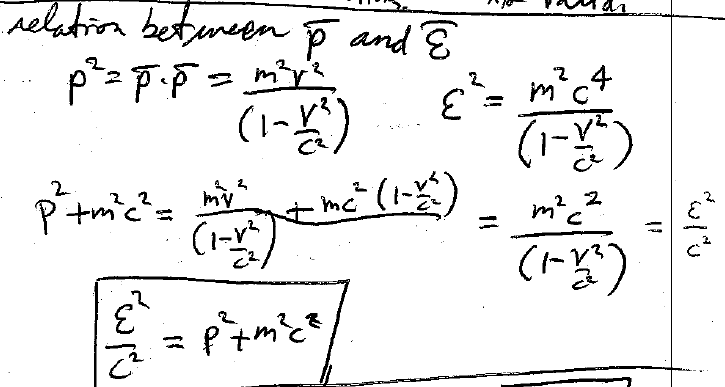 relation between p̄ and ℰ̄
p² = p̄·p̄ = m²v² / (1 - v²/c²)    ℰ² = m²c⁴ / (1 - v²/c²)
p² + m²c² = m²v² / (1 - v²/c²) + mc² (1 - v²/c²) = m²c² / (1 - v²/c²) = ℰ²/c²
ℰ²/c² = p² + m²c²